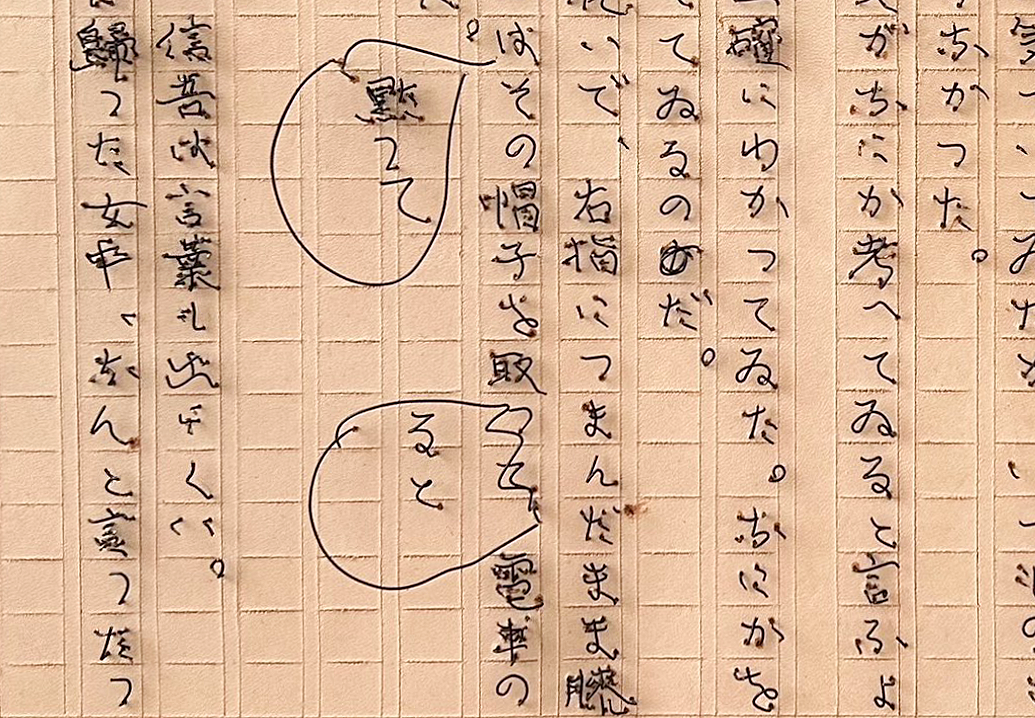 なかつた。
がなにか考へてゐると言ふよ
確にわかつてゐた。なにかを
てゐるのだ。
いで、右指につまんだまま膝
はその帽子を取
電車の
黙つて
ると
信吾は言葉も出にくい。
歸つた女中、なんと言つたつ